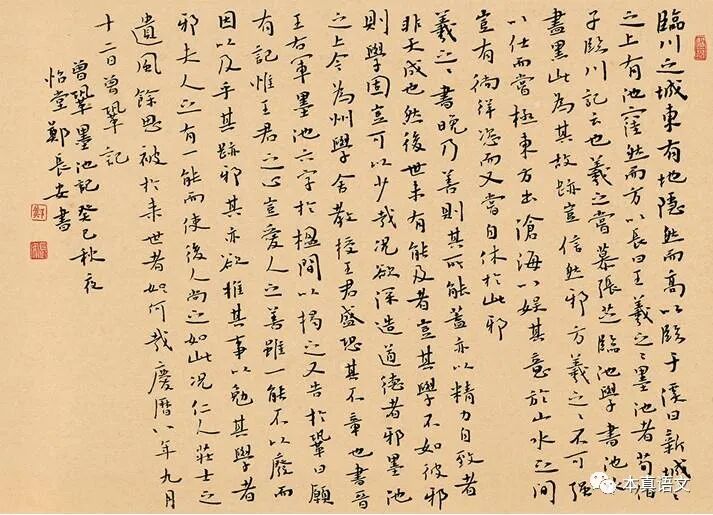 臨川之城東有地隱然而高以臨于溪曰新城〻
之上有池窪然而方以長曰王羲之〻墨池者荀伯
子臨川記云也羲之嘗慕張芝臨池學書池水
盡黑此為其故跡豈信然邪方羲之〻不可強
以仕而嘗極東方出滄海以娛其意於山水之間
豈有徜徉恣而又嘗自休於此邪
羲之〻書晚乃善則其所能蓋亦以精力自致者
非天成也然後世未有能及者豈其學不如彼邪
則學固豈可以少哉况欲深造道德者邪墨池
之上今為州學舍教授王君盛恐其不章也書晉
王右軍墨池六字於楹間以揭之又告於鞏曰願
有記惟王君之心豈愛人之善雖一能不以廢而
因以及乎其跡邪其亦欲推其事以勉其學者
邪夫人之有一能而使後人尚之如此况仁人莊士之
遺風餘思被於来世者如何哉慶曆八年九月
十二日曾鞏記
曾鞏墨池記癸巳秋夜
怡堂鄭長安書
本真语文